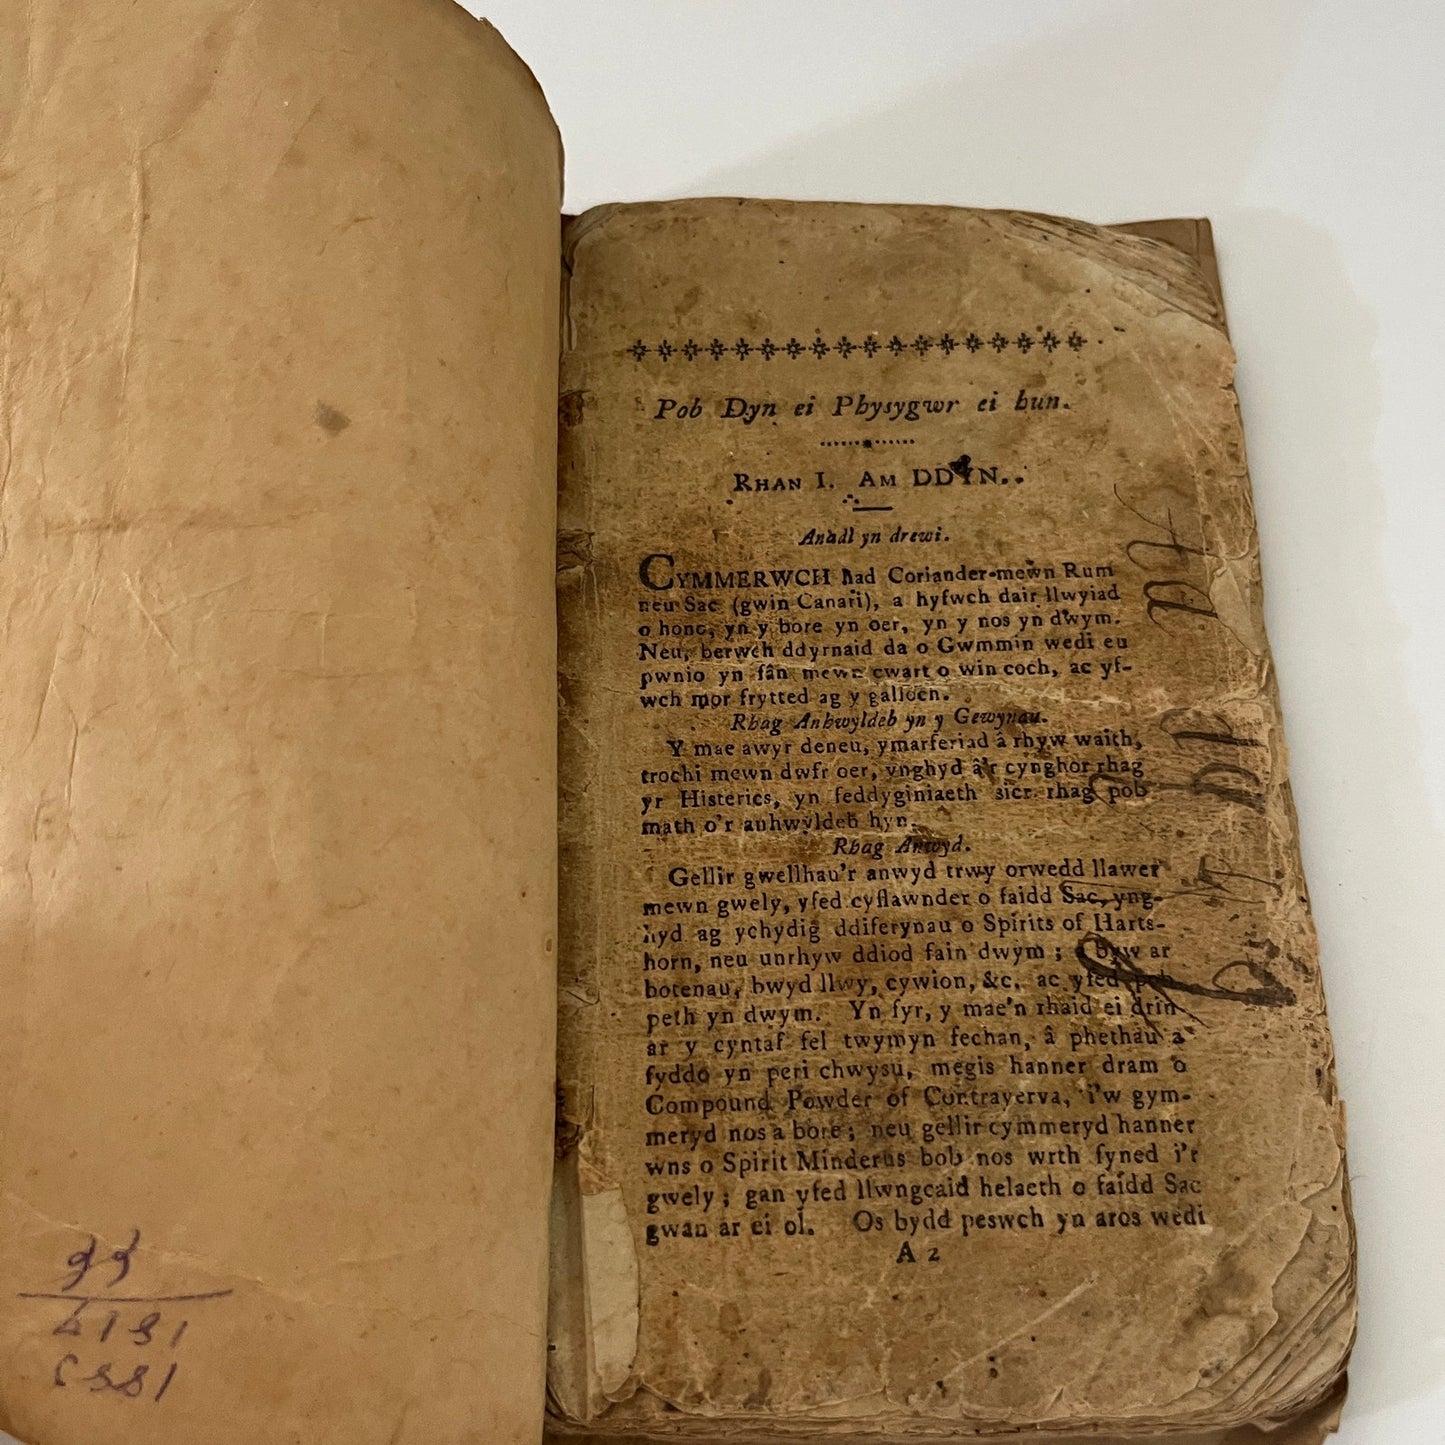 Pob Dyn ei Physygwr ei hun.
RHAN I. AM DDYN.
Anadl yn drewi.
CYMMERWCH had Coriander mewn Rum
neu Sac (gwin Canari), a hyfwch dair llwyiad
o hono, yn y bore yn oer, yn y nos yn dwym.
Neu, berwch ddyrnaid da o Gwmmin wedi eu
pwnio yn fân mewn cwart o win coch, ac yf-
wch mor frytted ag y galloch.
Rhag Anhwyldeb yn y Gewynau.
Y mae awyr deneu, ymarferiad â rhyw waith,
trochi mewn dwfr oer, ynghyd â'r cynghor rhag
yr Histerics, yn feddyginiaeth sicr rhag pob
math o'r anhwyldeb hyn.
Rhag Anwyd.
Gellir gwellhau'r anwyd trwy orwedd llawer
mewn gwely, yfed cyflawnder o faidd Sac, yng-
hyd ag ychydig ddiferynau o Spirits of Harts-
horn, neu unrhyw ddiod fain dwym; a byw ar
botenau, bwyd llwy, cywion, &c. ac yfed pob
peth yn dwym. Yn fyr, y mae'n rhaid ei drin
ar y cyntaf fel twymyn fechan, â phethau a
fyddo yn peri chwysu, megis hanner dram o
Compound Powder of Contrayerva, i'w gym-
meryd nos a bore; neu gellir cymmeryd hanner
wns o Spirit Minderus bob nos wrth fyned i'r
gwely; gan yfed llwngcaid helaeth o faidd Sac
gwan ar ei ol. Os bydd peswch yn aros wedi
A 2